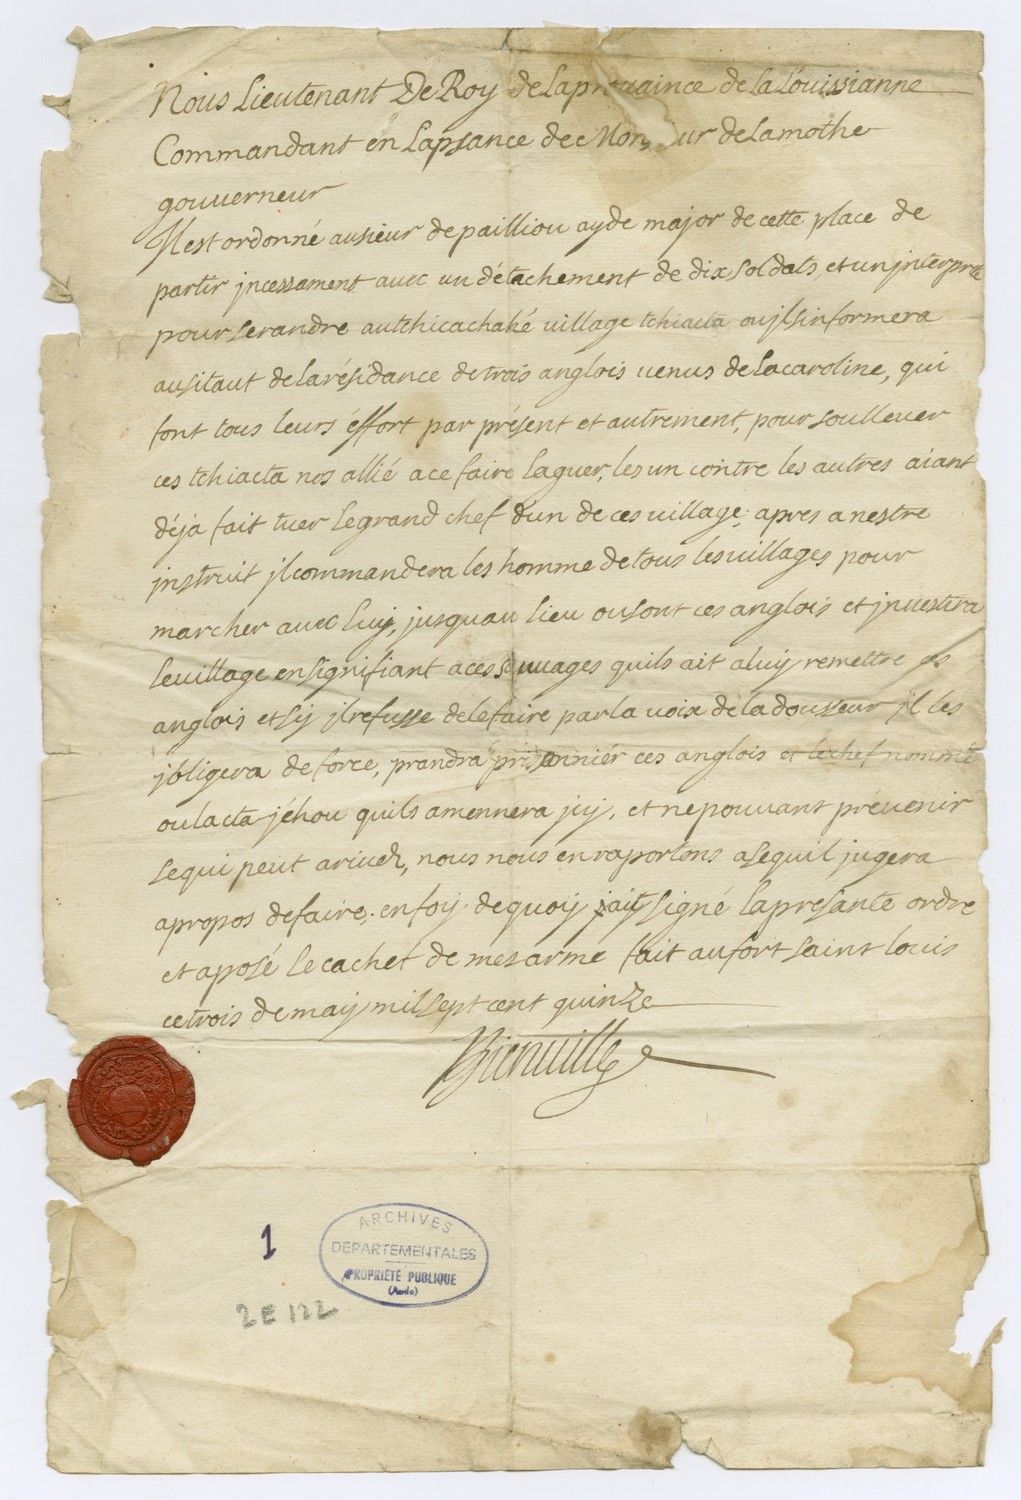 Nous Lieutenant De Roy de Laprouaince de la Louissianne
Commandant en Lapsance de Monsieur de Lamothe
gouuerneur
Jl est ordonné au sieur de pailliou ayde major de cette place de
partir jncessament auec un détachement de dix soldats, et un jnterprete
pour se randre au tchicachaké uillage tchiacta ou jl sinformera
ausitaut de la résidance de trois anglois uenus de la caroline, qui
font tous leurs éffort par présent et autrement, pour soulleuer
ces tchiacta nos allié a ce faire la guer, les un contre les autres aiant
déja fait tuer le grand chef dun de ces uillage; apres anestre
jnstruit jl commandera les homme de tous les uillages pour
marcher auec luy, jusquau lieu ou sont ces anglois et jnuestira
le uillage en signifiant a ces sauuages quils ait a luy remettre ces
anglois et sy jl refusse de le faire par la uoix de la dousseur jl les
jobligera de force, prandra prisonniér ces anglois et le chef nommé
oulacta jéhou quils amennera jcy, et ne pouuant préuenir
se qui peut ariuer, nous nous en raportons a se quil jugera
apropos de faire. en foy de quoy jait signé la presante ordre
et aposé le cachet de mes arme fait au fort saint louis
ce trois de may mil sept cent quinze
Bienuille
1
ARCHIVES
DEPARTEMENTALES
PROPRIÉTÉ PUBLIQUE
(Aude)
2 E 122